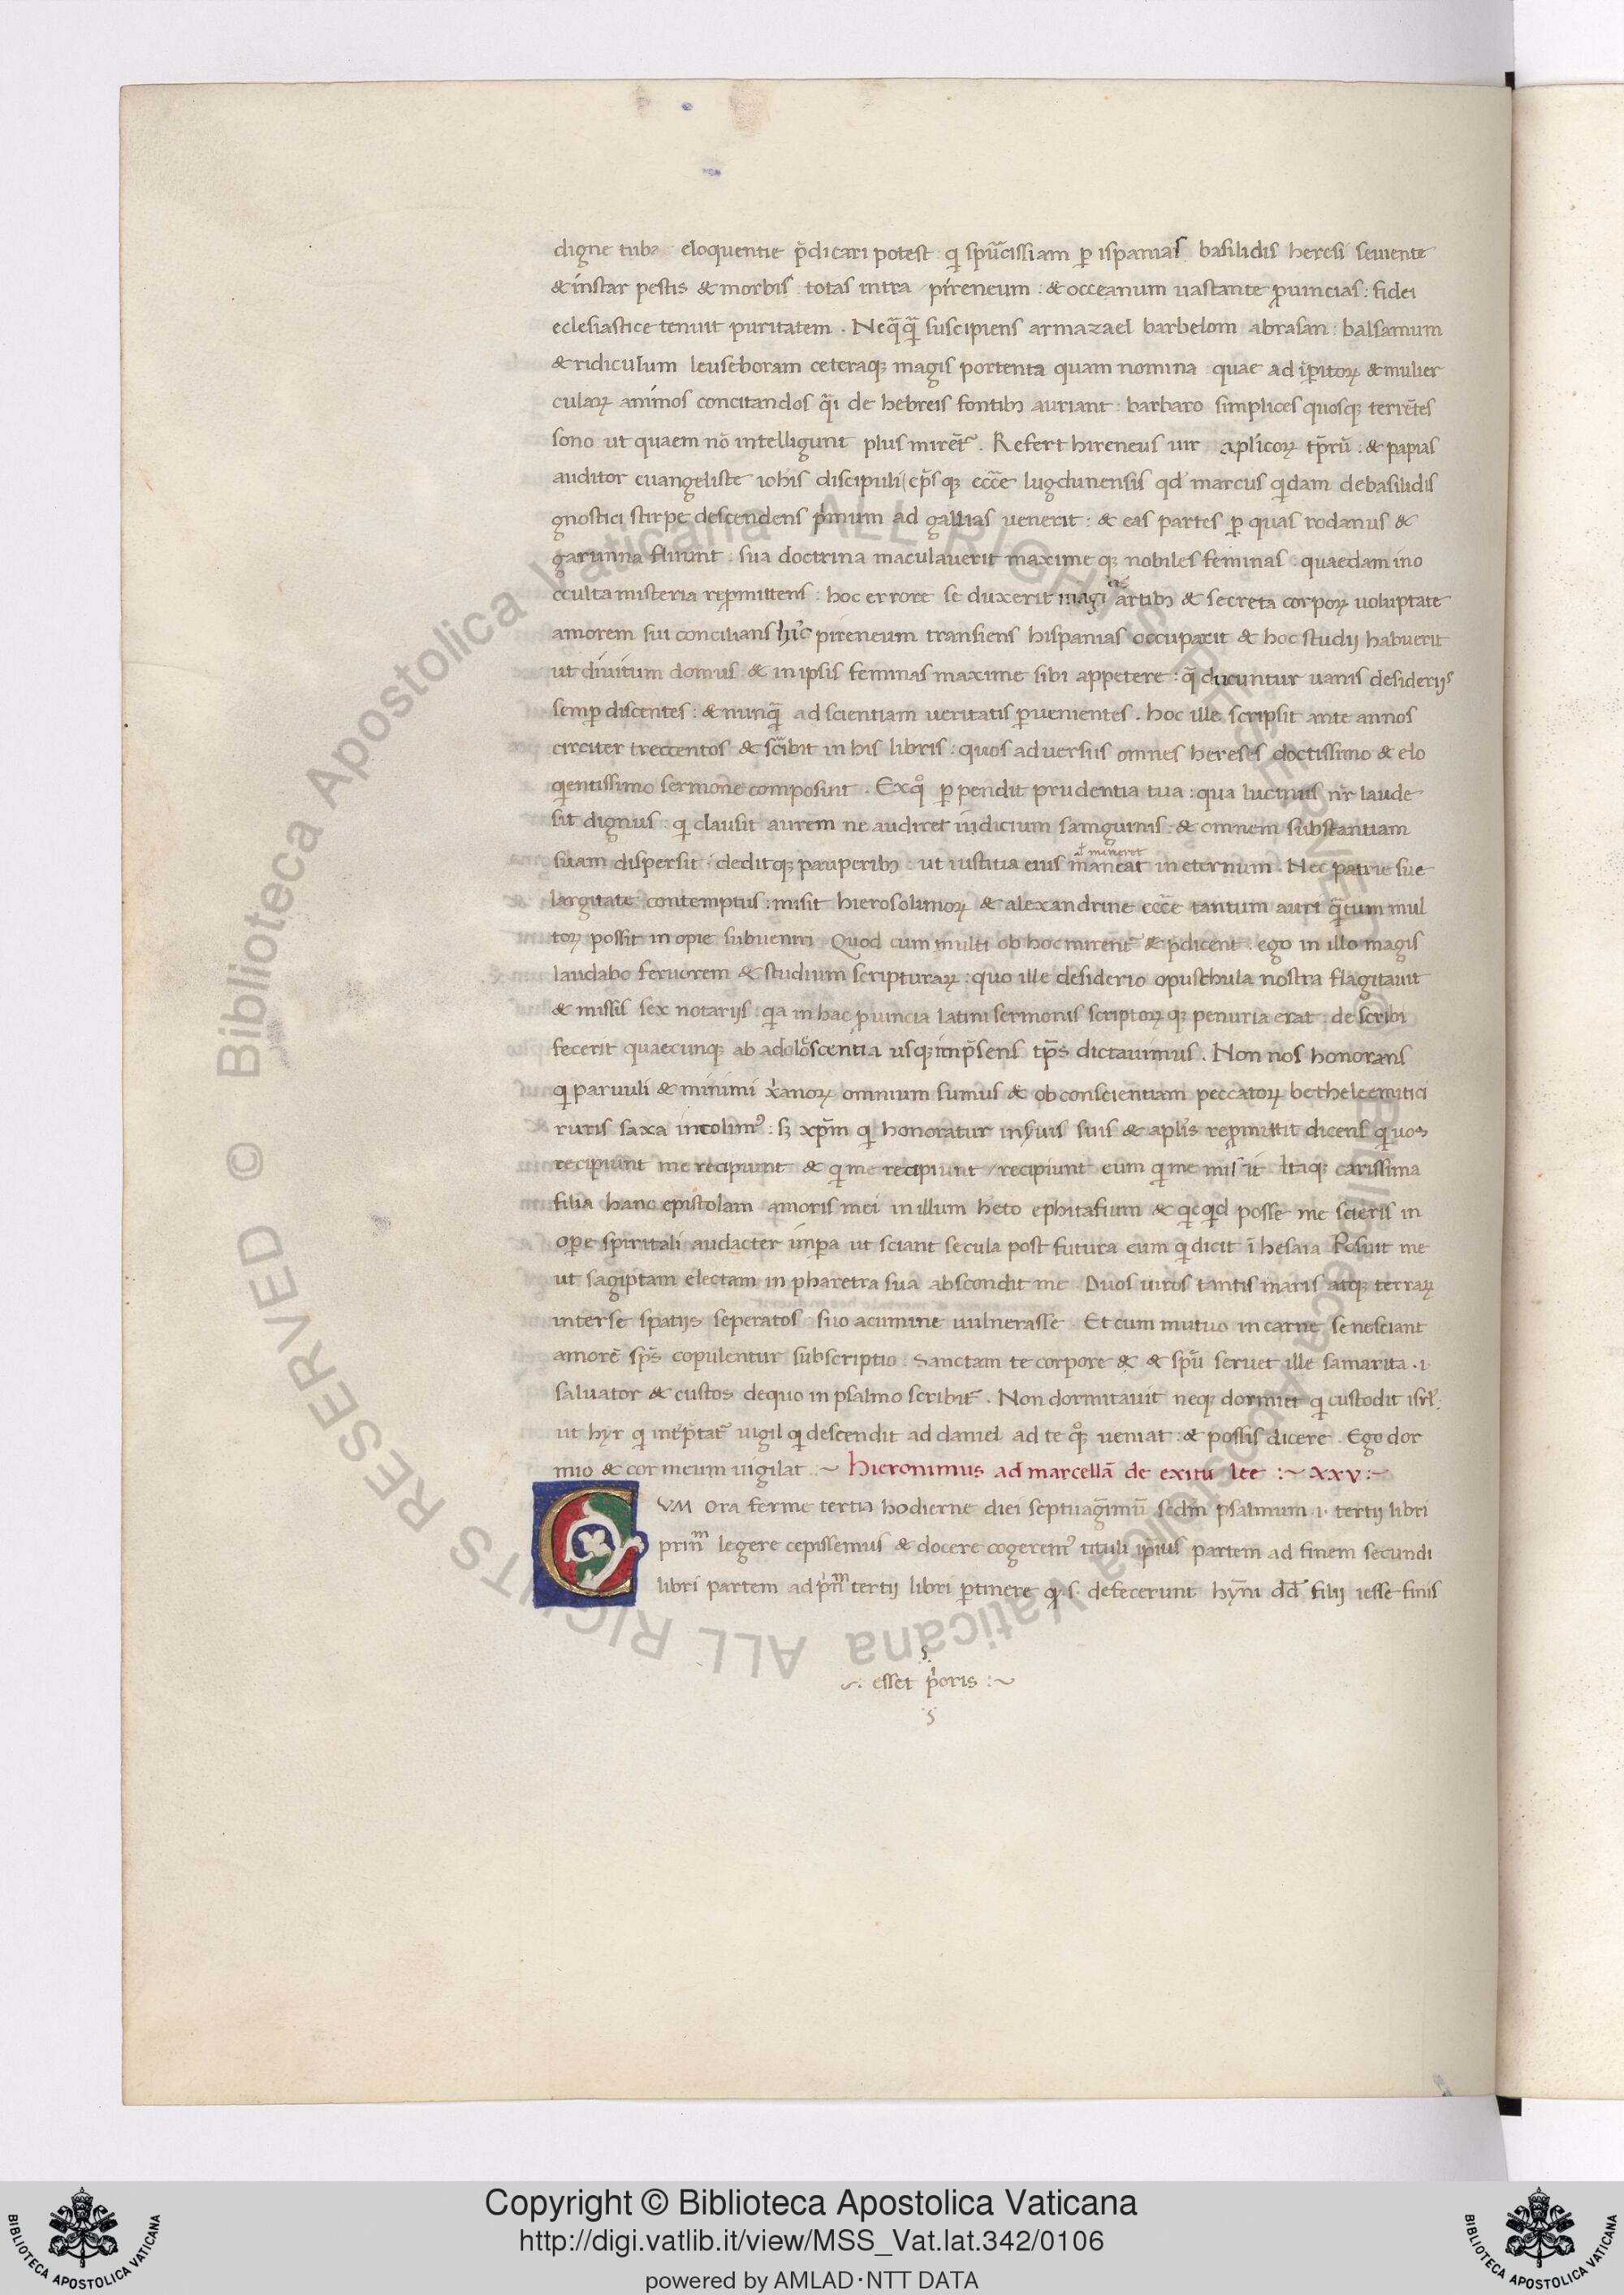 digne tuba eloquentie p̄dicari potest qi spūcissiam ꝑ ispanias basilidis heresi seuiente
& instar pestis & morbis totas intra pireneum : & occeanum uastante ꝓuincias : fidei
eclesiastice tenuit puritatem . Neq̄q̄ suscipiens armazael barbelom abrasan : balsamum
& ridiculum leuseboram ceteraqꝫ magis portenta quam nomina quae ad iꝑitoꝝ & mulier
culaꝝ animos concitandos q̄i de hebreis fontibꝫ auriant : barbaro simplices quosqꝫ terrētes
sono ut quaem nō intelligunt plus mirēt᷑ . Refert hireneus uir aplicoꝝ tp̄rū : & papias
auditor euangeliste iohis discipuli ep̄s qꝫ ecc̄e lugdunensis qd marcus qidam de basilidis
gnostici stirpe descendens pͥmum ad gallias uenerit : & eas partes ꝑ quas rodanus &
garunna fluunt : sua doctrina maculauerit maxime qꝫ nobiles feminas : quaedam ino
cculta misteria reꝓmittens : hoc errore se duxerit magi artibꝫ & secreta corpoꝝ uoluptate
amorem sui concilians hic pireneum transiens hispanias occuparit & hoc studij habuerit
ut diuitum domus & in ipsis feminas maxime sibi appetere : q̄ ducuntur uanis desiderijs
semꝑ discentes : & nunq̄ ad scientiam ueritatis ꝑuenientes . hoc ille scripsit ante annos
circiter treccentos & sc̄ibit in his libris : quos aduersus omnes hereses doctissimo & elo
qientissimo sermone composuit . Exqͦ ꝑpendit prudentia tua : qua lucinus nr̄ laude
sit dignus : qi clausit aurem ne audiret iudicium samguinis : & omnem substantiam
ł maneret
suam dispersit : deditqꝫ pauperibꝫ : ut iustitia eius maneat in eternum . Nec patrie sue
largitate contemptus : misit hierosolimoꝝ & alexandrine ecc̄e tantum auri q̄tum mul
toꝝ possit in opie subueniri Quod cum multi ob hoc mirent᷑ & p̄dicent . ego in illo magis
laudabo feruorem & studium scripturaꝝ : quo ille desiderio opuschula nostra flagitauit
& missis sex notarijs : qia in hac ꝓuincia latini sermonis scriptoꝝ qꝫ penuria erat : de scribi
fecerit quaecunqꝫ ab adolōscentia usqꝫ inp̄sens tp̄s dictauimus . Non nos honorans
qi paruuli & minimi xͥanoꝝ omnium sumus & ob conscientiam peccatoꝝ betheleemitici
ruris saxa incolimꝰ : sꝫ xp̄m qi honoratur in suis & aplis reꝓmittit dicens qi uos
recipiunt me recipiunt & qi me recipiunt / recipiunt eum qi me misit . Itaqꝫ carissima
filia hanc epistolam amoris mei in illum heto ephitafium & qicqid posse me scieris in
oꝑe spiritali audacter imꝑa ut sciant secula post futura eum qi dicit ī hesaia Posuit me
ut sagiptam electam in pharetra sua abscondit me . Duos uiros tantis maris atqꝫ terraꝝ
inter se spatijs seperatos suo acumine uulnerasse . Et cum mutuo in carne se nesciant
amorē sp̄s copulentur subscriptio . Sanctam te corpore & & spū seruet ille samarita .i.
saluator & custos dequo in psalmo scribit᷑ . Non dormitauit neqꝫ dormiet qi custodit isrł .
ut hyr qi intp̄tat᷑ uigil qi descendit ad daniel ad te qoꝫ ueniat : & possis dicere . Ego dor
mio & cor meum uigilat : ~ Hieronimus ad marcellā de exitu lee : ~ xxv : ~
CVM ora ferme tertia hodierne diei septuagīmū sed̄m psalmum .i. tertij libri
prin̄ legere cepissemus & docere cogeremꝰ tituli ipsius partem ad finem secundi
libri partem ad prin̄ tertij libri ꝑtinere qi .s. defecerunt hym̄ dd̄ filij iesse finis
esset pͥoris : ~
Copyright © Biblioteca Apostolica Vaticana
http://digi.vatlib.it/view/MSS_Vat.lat.342/0106
powered by AMLAD·NTT DATA
BIBLIOTECA APOSTOLICA VATICANA
BIBLIOTECA APOSTOLICA VATICANA
© Biblioteca Apostolica Vaticana ALL RIGHTS RESERVED © Biblioteca Apostolica Vaticana ALL RIGHTS RESERVED